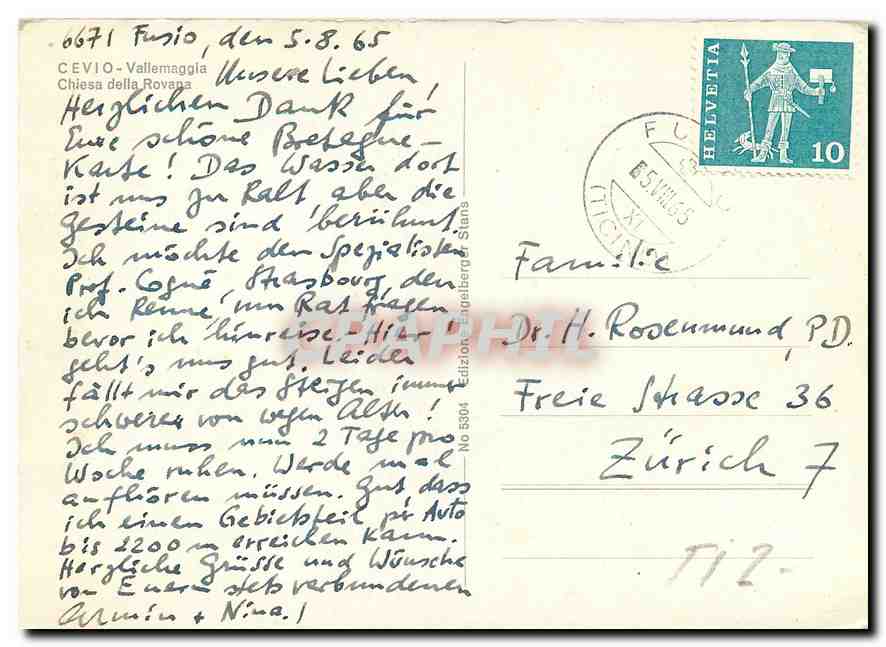 6671 Fusio, den 5.8.65
CEVIO - Vallemaggia
Chiesa della Rovana
Unsere Lieben!
Herzlichen Dank für
Eure schöne Bretagne-
Karte! Das Wasser dort
ist uns zu kalt aber die
Gesteine sind berühmt.
Ich möchte den Spezialisten
Prof. Cogné, Strasbourg, den
ich kenne, um Rat fragen
bevor ich hinreise - Hier
geht's uns gut. Leider
fällt mir das Steigen immer
schwerer von wegen Alter!
Ich muss nun 2 Tage pro
Woche ruhen. Werde mal
aufhören müssen. Gut, dass
ich einen Gebietsteil per Auto
bis 2200 m erreichen kann.
Herzliche Grüsse und Wünsche
von Euern stets verbundenen
Armin + Nina!
No 5304 Edizione Engelberger Stans
HELVETIA
10
FUSIO
-5.VIII.65
XI
(TICINO)
Familie
Dr. H. Rosenmund, P.D.
Freie Strasse 36
Zürich 7
TIZ-
CPAPHIL